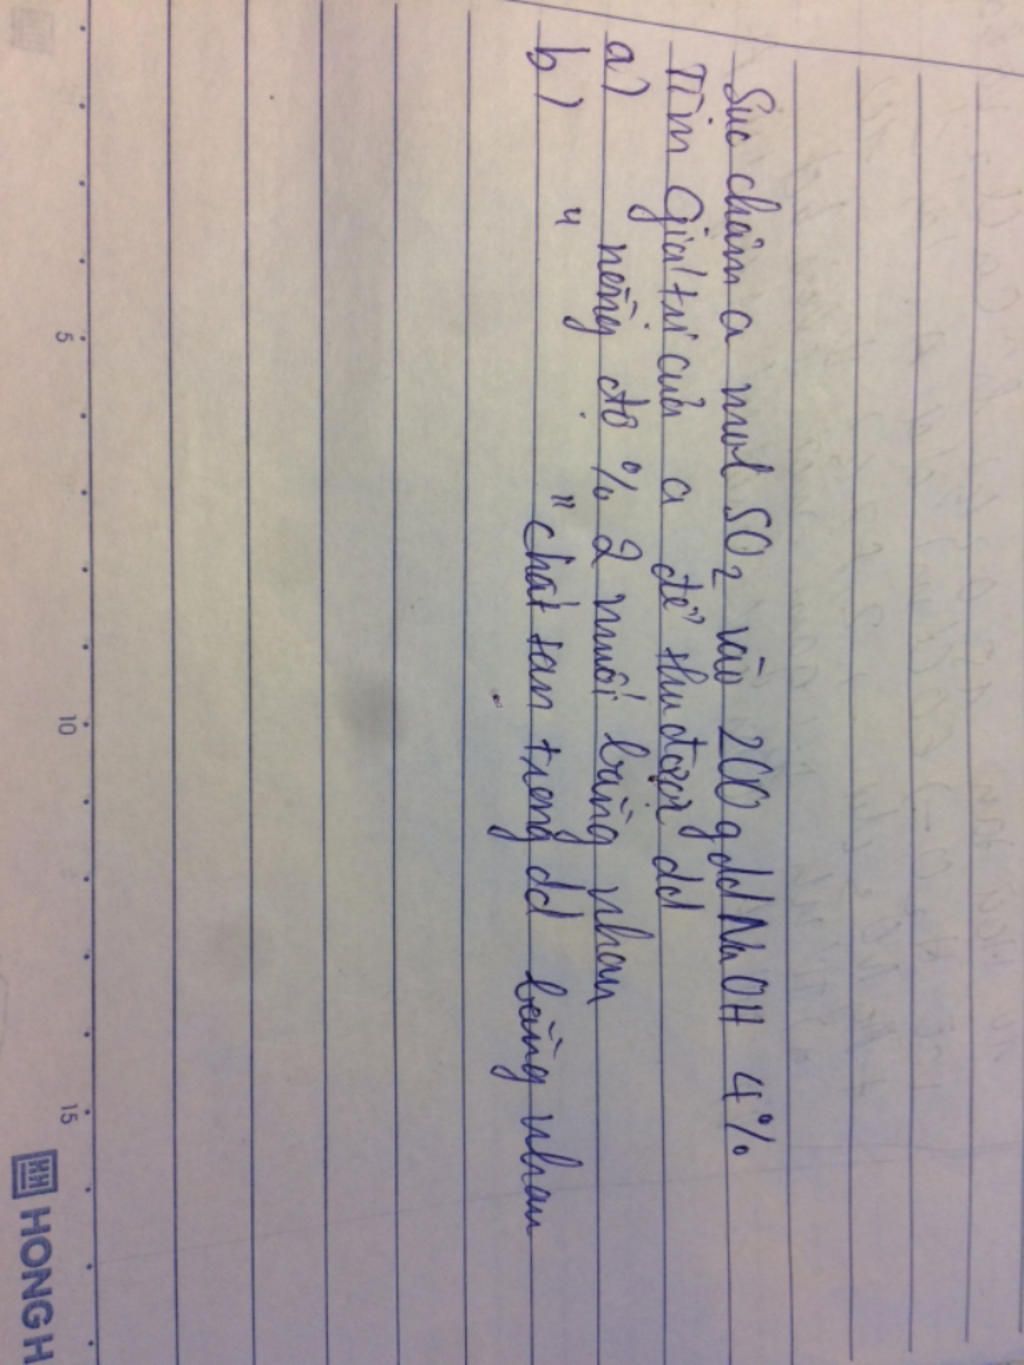 Sục chậm a mol SO2 vào 200g dd NaOH 4%
Tìm Giá trị của a để thu được dd
a) nồng độ % 2 muối bằng nhau
b) " " chất tan trong dd bằng nhau
5 10 15
HH HONG H